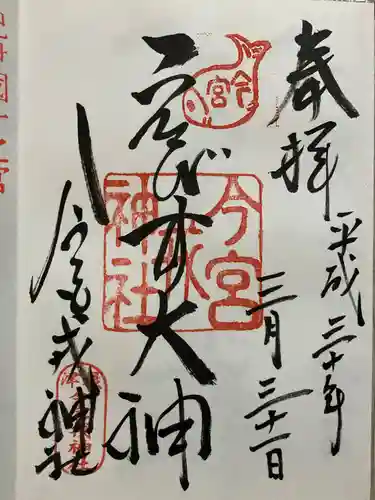 奉拝
平成三十年
三月三十一日
えびす大神
今宮戎神社
今宮戎神社
今宮